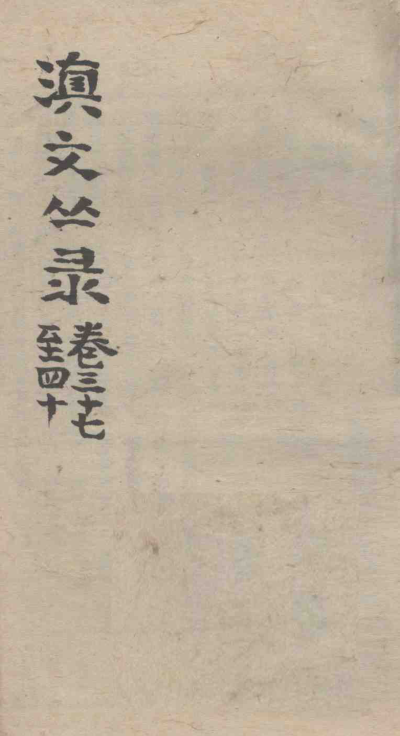 滇文丛录
卷三十七
至四十